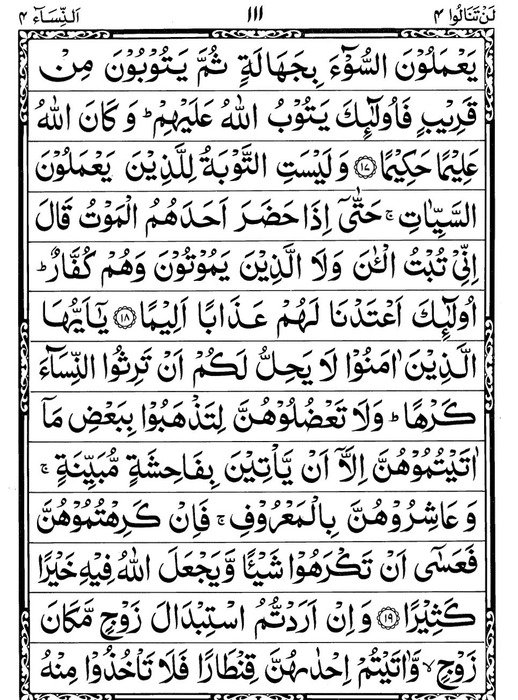 لَنْ تَنَالُوا ٤ ١١١ اَلنِّسَآء ٤
يَعْمَلُوْنَ السُّوْٓءَ بِجَهَالَةٍ ثُمَّ يَتُوْبُوْنَ مِنْ
قَرِيْبٍ فَاُولٰٓئِكَ يَتُوْبُ اللّٰهُ عَلَيْهِمْ ؕ وَ كَانَ اللّٰهُ
عَلِيْمًا حَكِيْمًا ۝١٧ وَ لَيْسَتِ التَّوْبَةُ لِلَّذِيْنَ يَعْمَلُوْنَ
السَّيِّاٰتِ ۚ حَتّٰۤى اِذَا حَضَرَ اَحَدَهُمُ الْمَوْتُ قَالَ
اِنِّيْ تُبْتُ الْـٰٔنَ وَلَا الَّذِيْنَ يَمُوْتُوْنَ وَهُمْ كُفَّارٌ ؕ
اُولٰٓئِكَ اَعْتَدْنَا لَهُمْ عَذَابًا اَلِيْمًا ۝١٨ يٰۤاَيُّهَا
الَّذِيْنَ اٰمَنُوْا لَا يَحِلُّ لَكُمْ اَنْ تَرِثُوا النِّسَآءَ
كَرْهًا ؕ وَلَا تَعْضُلُوْهُنَّ لِتَذْهَبُوْا بِبَعْضِ مَاۤ
اٰتَيْتُمُوْهُنَّ اِلَّاۤ اَنْ يَّاْتِيْنَ بِفَاحِشَةٍ مُّبَيِّنَةٍ ۚ
وَ عَاشِرُوْهُنَّ بِالْمَعْرُوْفِ ۚ فَاِنْ كَرِهْتُمُوْهُنَّ
فَعَسٰۤى اَنْ تَكْرَهُوْا شَيْـًٔا وَّيَجْعَلَ اللّٰهُ فِيْهِ خَيْرًا
كَثِيْرًا ۝١٩ وَ اِنْ اَرَدْتُّمُ اسْتِبْدَالَ زَوْجٍ مَّكَانَ
زَوْجٍ ۙ وَّاٰتَيْتُمْ اِحْدٰىهُنَّ قِنْطَارًا فَلَا تَاْخُذُوْا مِنْهُ